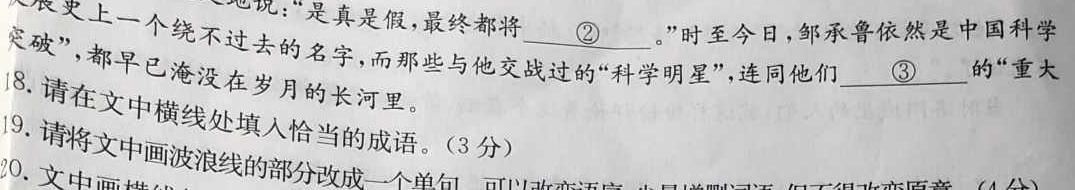 说：“是真是假，最终都将 ② 。”时至今日，邹承鲁依然是中国科学
发展史上一个绕不过去的名字，而那些与他交战过的“科学明星”，连同他们 ③ 的“重大
突破”，都早已淹没在岁月的长河里。
18. 请在文中横线处填入恰当的成语。（3分）
19. 请将文中画波浪线的部分改成一个单句，可以改变语序，
20. 文中画横